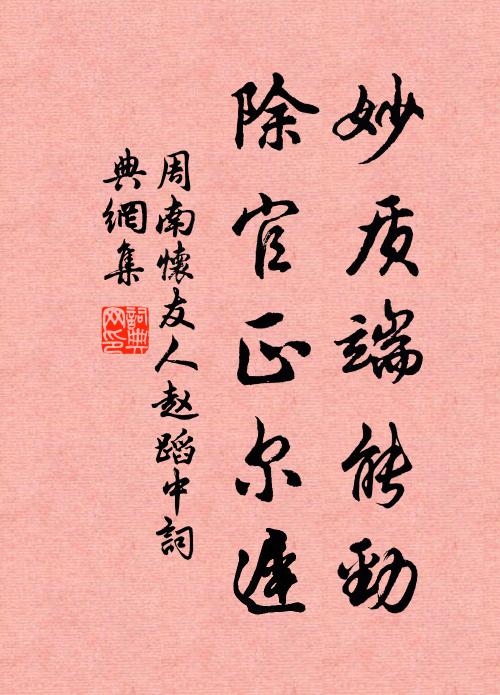 妙质端能勁
除官正尔遲
周南懷友人赵蹈中詞
典網集
詞典网印